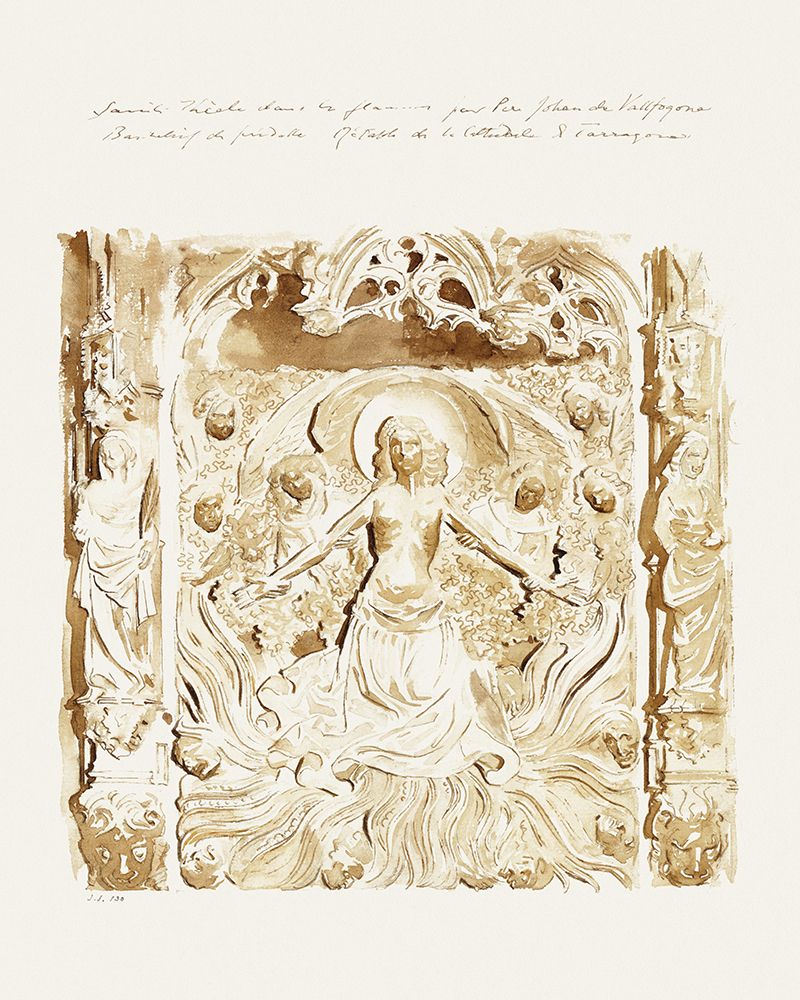 Sainte Thècle dans les flammes par Pere Johan de Vallfogona
Bas-relief de predelle Rétable de la Cathédrale de Tarragona
J.S. 130